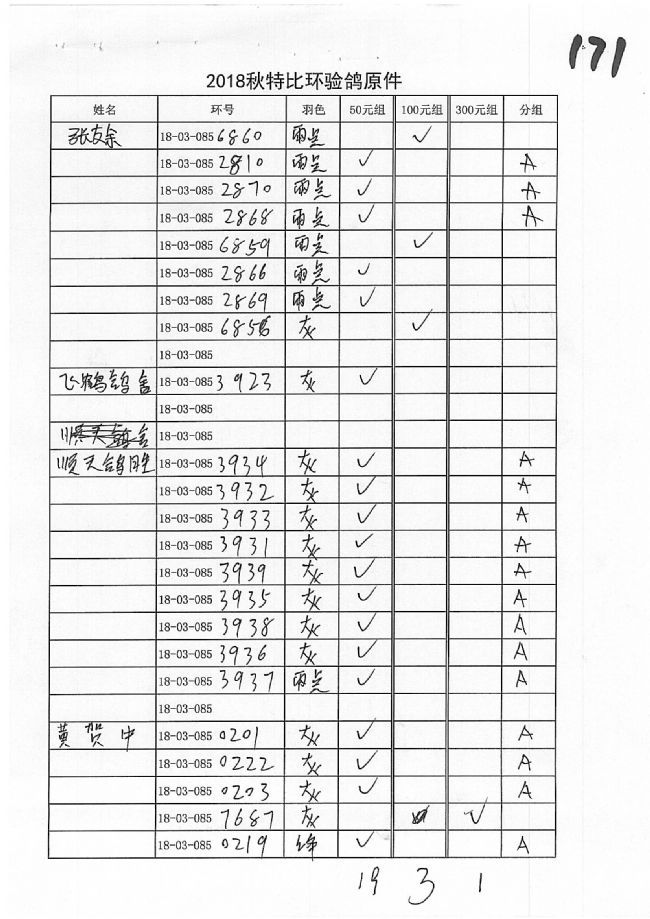 171
2018秋特比环验鸽原件
姓名 环号 羽色 50元组 100元组 300元组 分组
张友余 18-03-085 6860 雨点 ✓
18-03-085 2810 雨点 ✓ A
18-03-085 2870 雨点 ✓ A
18-03-085 2868 雨点 ✓ A
18-03-085 6859 雨点 ✓
18-03-085 2866 雨点 ✓
18-03-085 2869 雨点 ✓
18-03-085 685 灰 ✓
18-03-085
飞鹤鸽舍 18-03-085 3923 灰 ✓
18-03-085
18-03-085
顺天鸽 18-03-085 3934 灰 ✓ A
18-03-085 3932 灰 ✓ A
18-03-085 3933 灰 ✓ A
18-03-085 3931 灰 ✓ A
18-03-085 3939 灰 ✓ A
18-03-085 3935 灰 ✓ A
18-03-085 3938 灰 ✓ A
18-03-085 3936 灰 ✓ A
18-03-085 3937 雨点 ✓ A
18-03-085
黄贺中 18-03-085 0201 灰 ✓ A
18-03-085 0222 灰 ✓ A
18-03-085 0203 灰 ✓ A
18-03-085 7687 灰 ✓
18-03-085 0219 绛 ✓ A
19 3 1